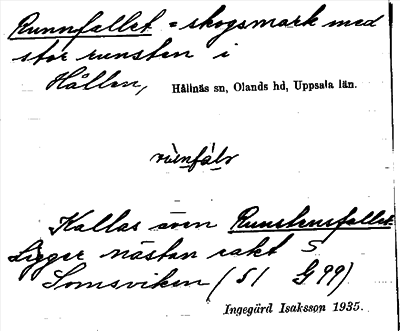 Runnfallet = skogsmark med
stor runsten i
Hållen, Hållnäs sn, Olands hd, Uppsala län.
Kallas även Runstensfallet.
Ligger nästan rakt S
Somsviken (S1 G99)
Ingegärd Isaksson 1935.